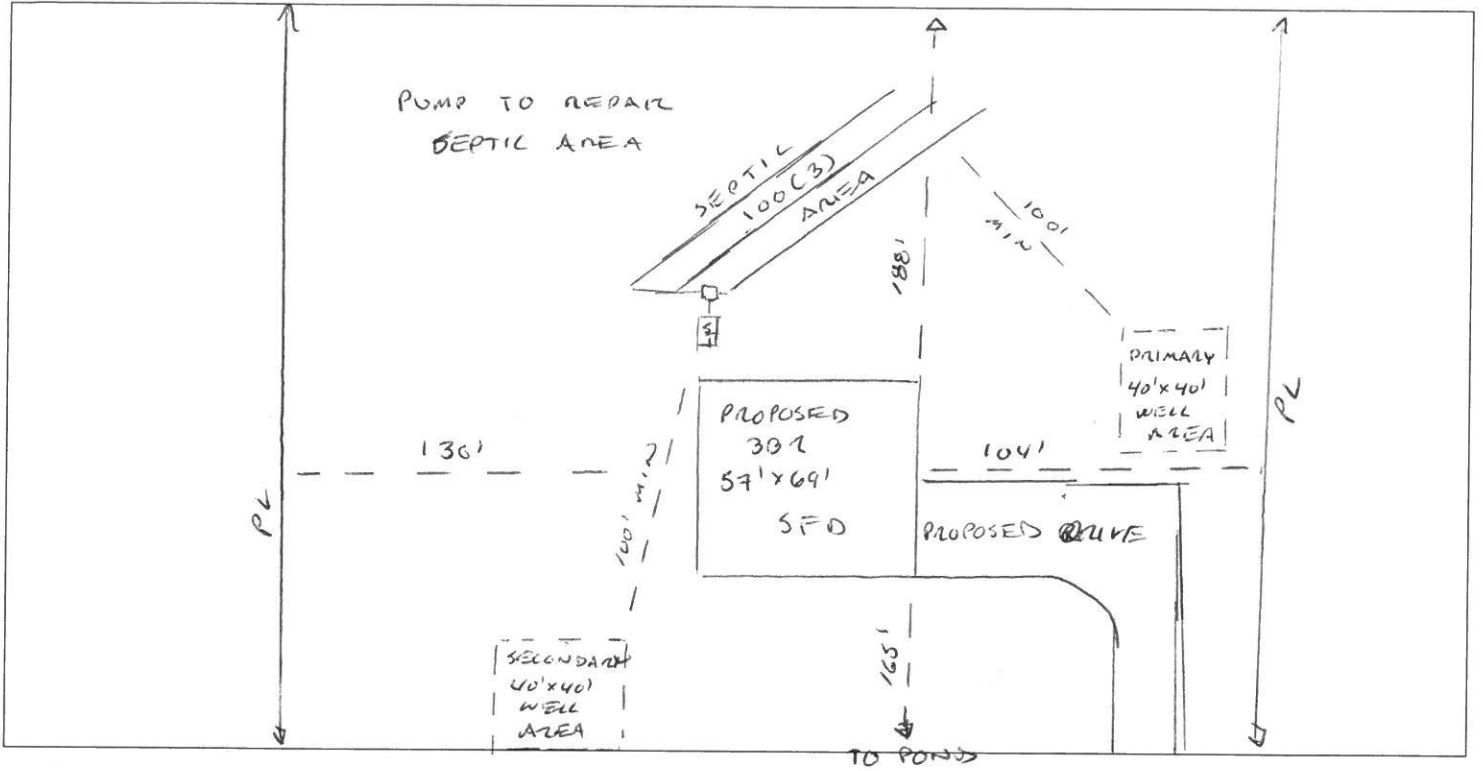 PUMP TO REPAIR
SEPTIC AREA
SEPTIC
100(3)
AREA
188'
100'
MIN
PRIMARY
40'x40'
WELL
AREA
PL
PL
130'
100' MIN
ST
PROPOSED
3BR
57'x69'
SFD
104'
PROPOSED DRIVE
SECONDARY
40'x40'
WELL
AREA
165'
TO POND